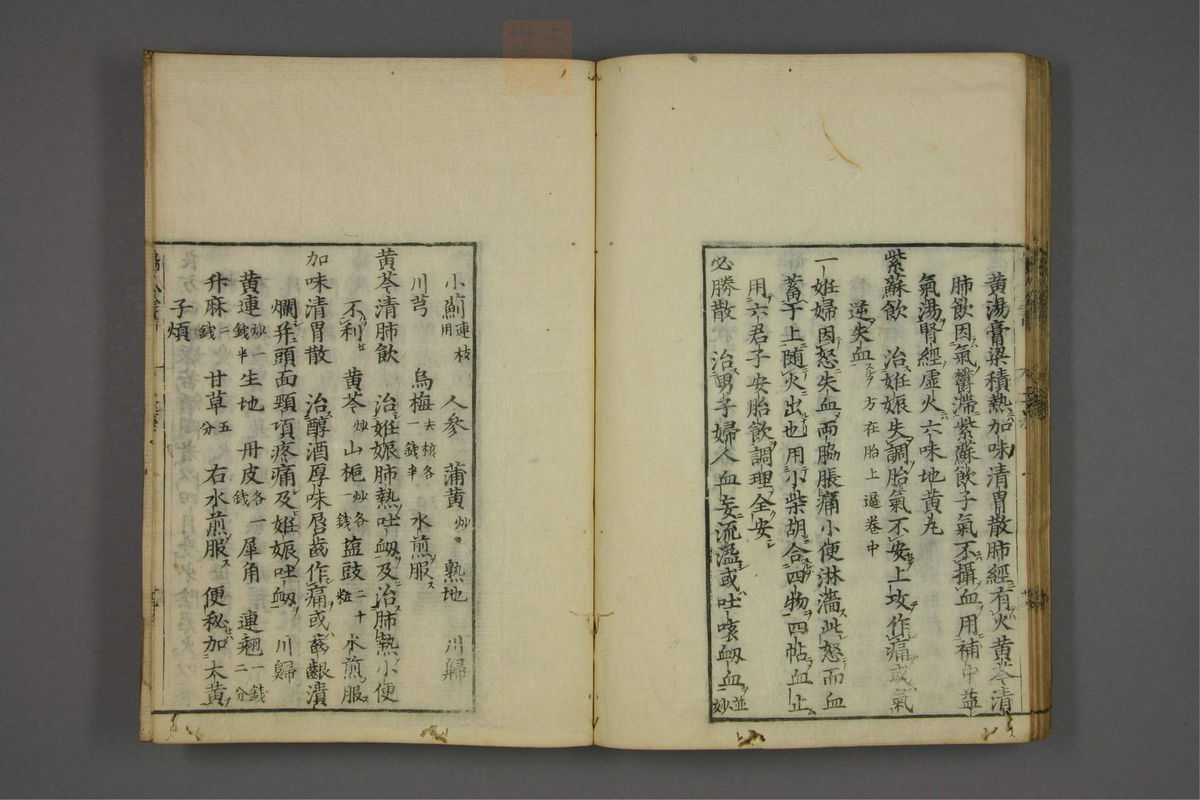 黄湯膏粱積熱加味清胃散肺經有火黄芩清
肺飲因氣欝滯紫蘇飲子氣不攝血用補中益
氣湯腎經虚火六味地黄丸
紫蘇飲 治姙娠失調胎氣不安上攻作痛或氣
逆失血 方在胎上逼卷中
一姙婦因怒失血兩脇脹痛小便淋濇此怒而血
蓄于上随火出也用小柴胡合四物四帖血止
用六君子安胎飲調理全安
必勝散 治男子婦人血妄流溢或吐咳衂血並妙
小薊連枝用 人參 蒲黄炒 熟地 川歸
川芎 烏梅去核各一錢半 水煎服
黄芩清肺飲 治姙娠肺熱吐衂及治肺熱小便
不利 黄芩炒 山梔炒各一錢 鹽豉二十粒 水煎服
加味清胃散 治醇酒厚味唇齒作痛或齒齦潰
爛并頭面頸項疼痛及姙娠吐衂 川歸
黄連炒一錢半 生地 丹皮各一錢 犀角 連翹一錢二分
升麻二錢 甘草五分 右水煎服 便秘加大黄
子煩